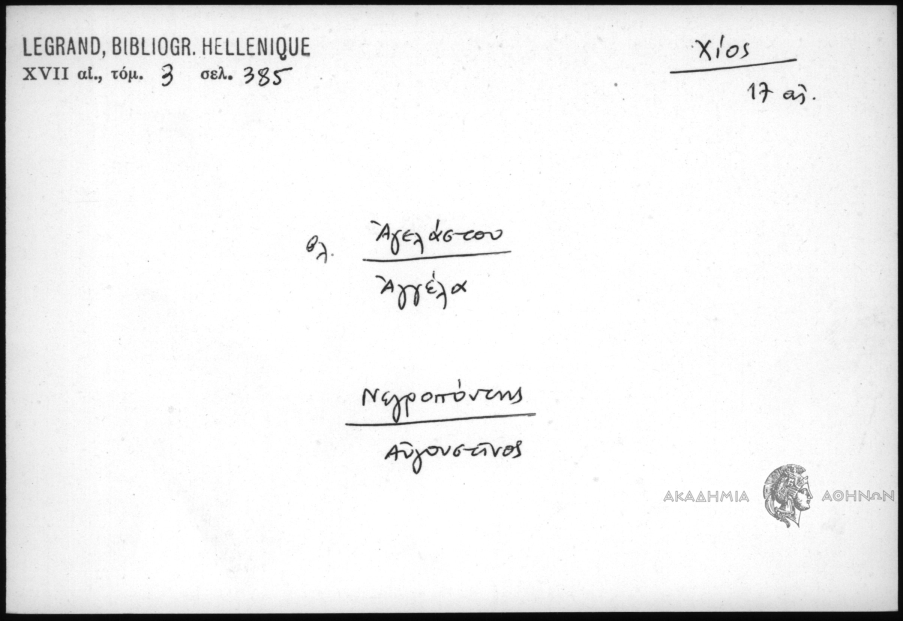 LEGRAND, BIBLIOGR. HELLENIQUE
XVII αἰ., τόμ. 3 σελ. 385
Χίος
17 αἰ.
βλ. Ἀγελάστου
Ἀγγέλα
Νεγροπόντης
Αὐγουστῖνος
ΑΚΑΔΗΜΙΑ ΑΘΗΝΩΝ